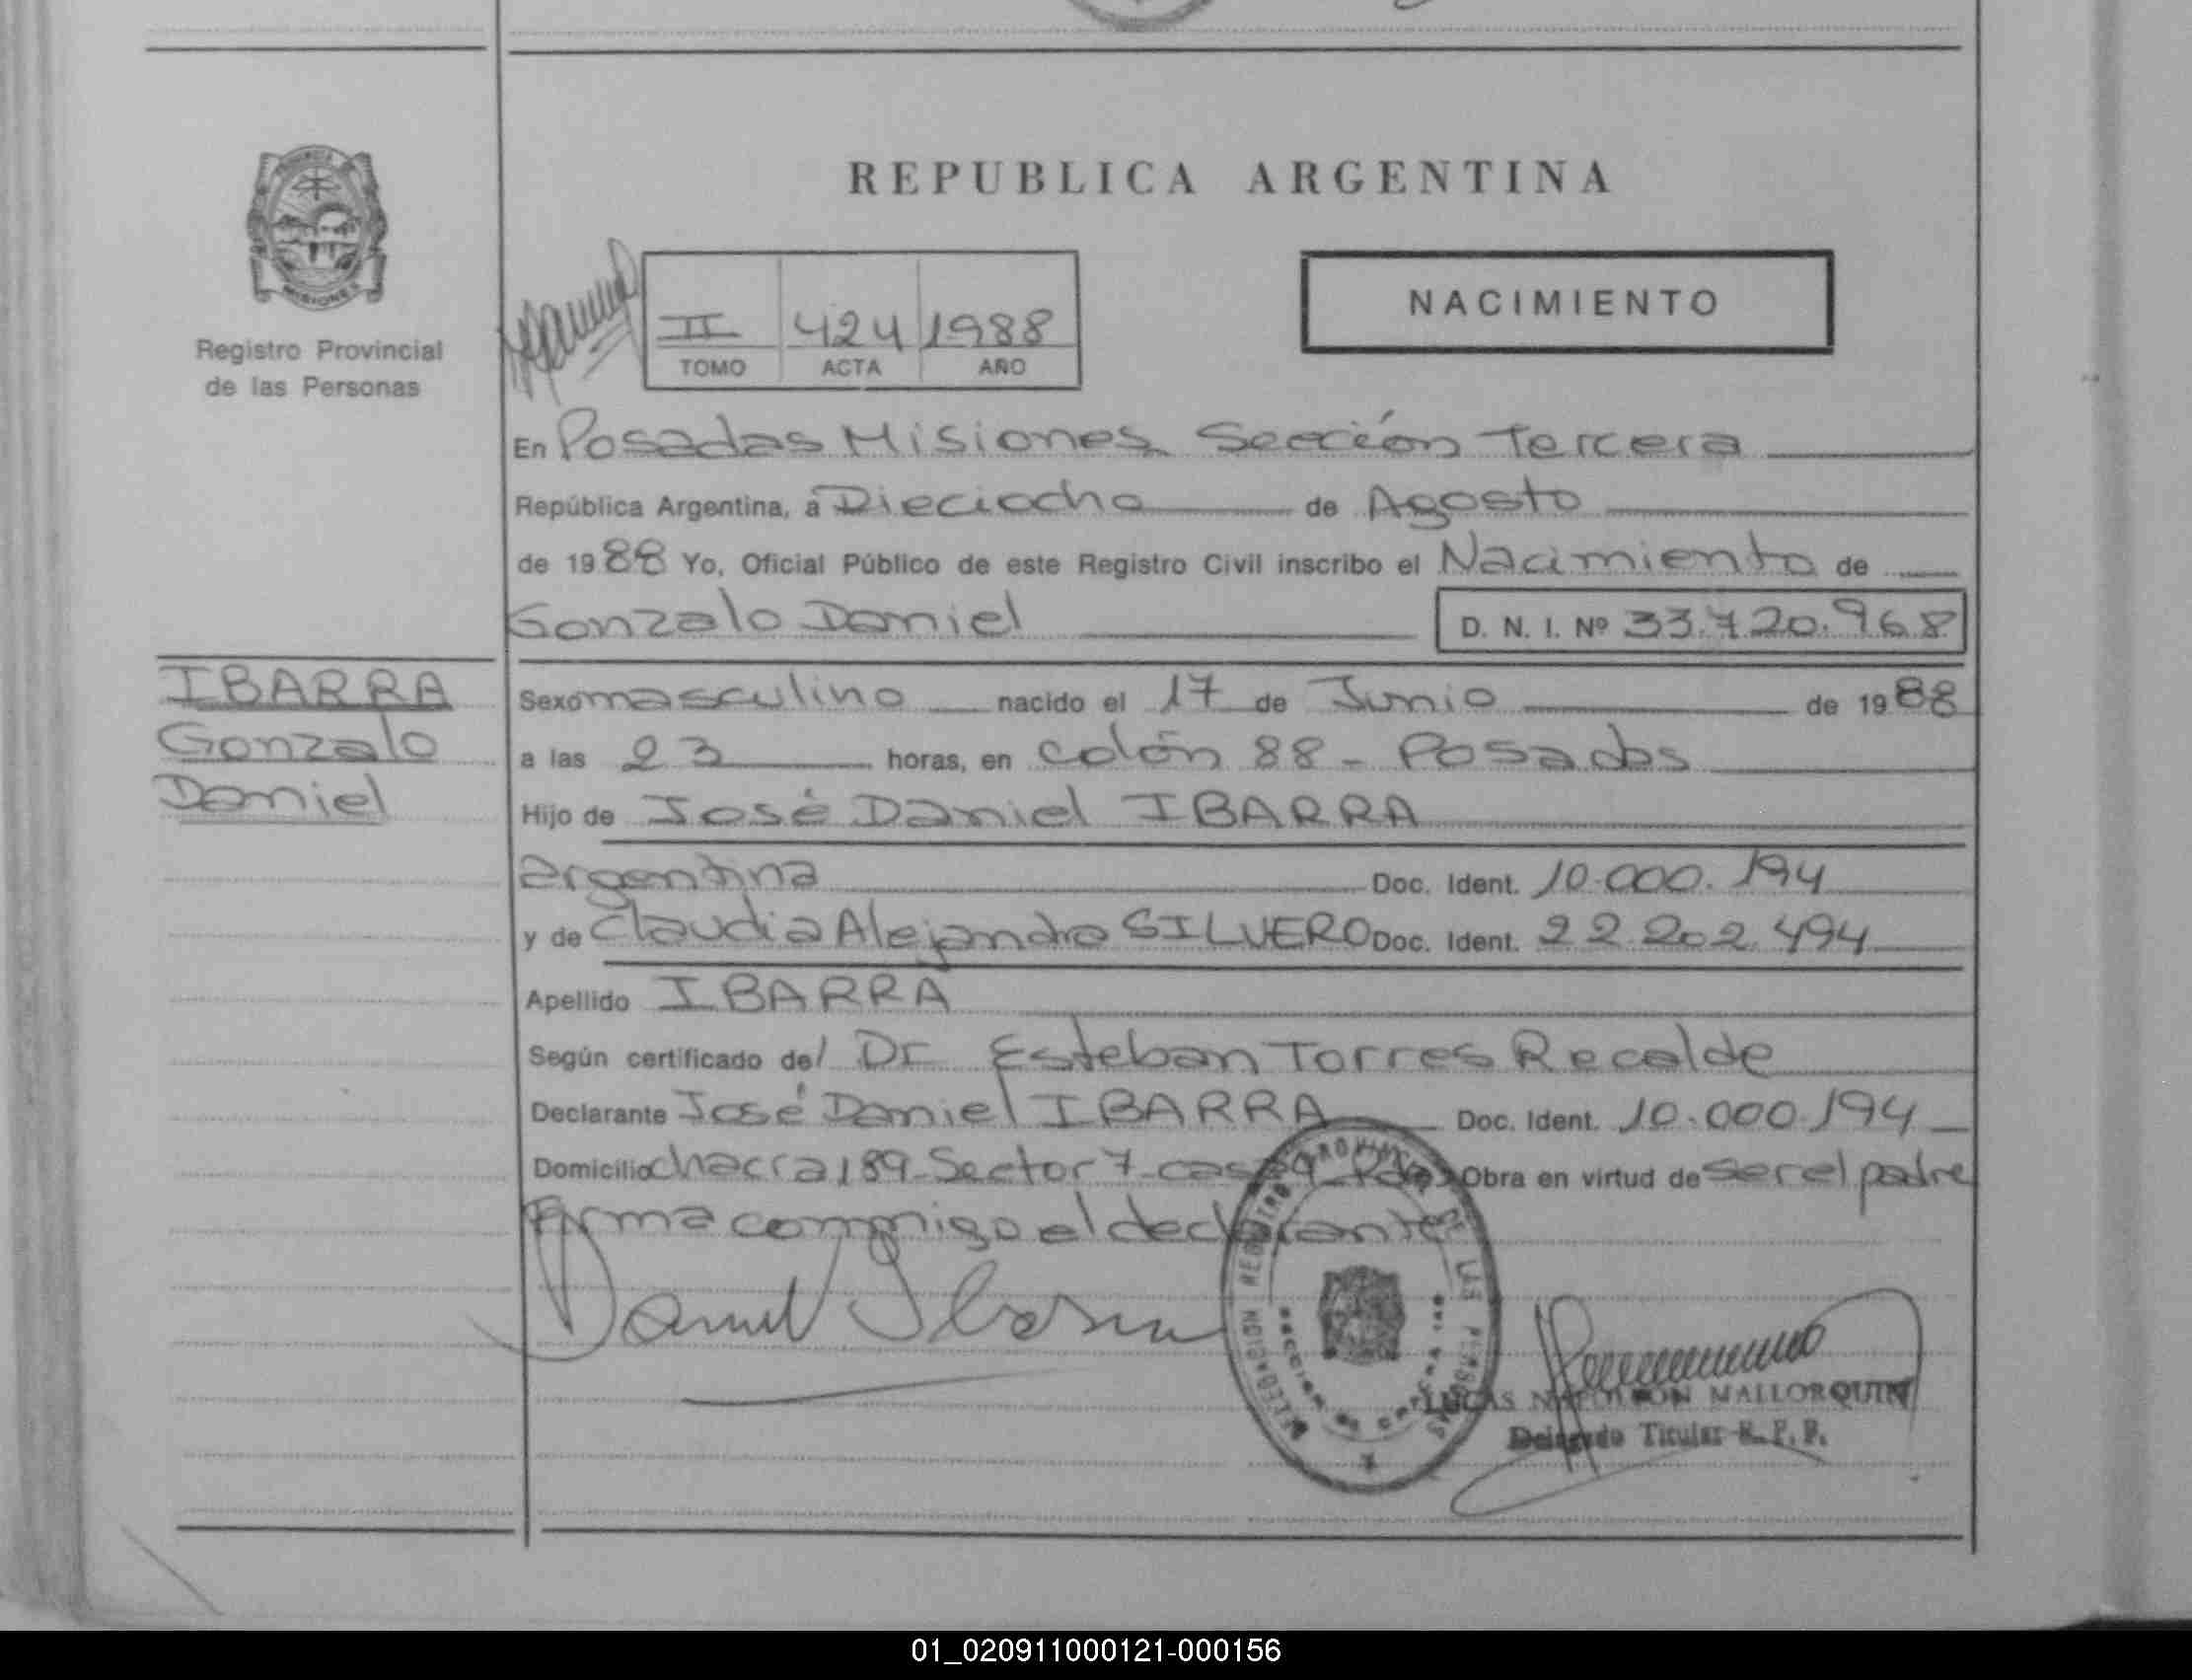 REPUBLICA ARGENTINA
MISIONES
Registro Provincial
de las Personas
II 424 1988
TOMO ACTA AÑO
NACIMIENTO
En Posadas Misiones Sección Tercera
República Argentina, a Dieciocho de Agosto
de 1988 Yo, Oficial Público de este Registro Civil inscribo el Nacimiento de
Gonzalo Daniel D. N. I. Nº 33.720.968
IBARRA
Gonzalo
Daniel
Sexo masculino nacido el 17 de Junio de 1988
a las 23 horas, en Colón 88 - Posadas
Hijo de José Daniel IBARRA
argentina Doc. Ident. 10.000.194
y de Claudia Alejandra SILVERO Doc. Ident. 22.202.494
Apellido IBARRA
Según certificado del Dr Esteban Torres Recalde
Declarante José Daniel IBARRA Doc. Ident. 10.000.194
Domicilio chacra 189-Sector 7-casa Obra en virtud de ser el padre
firma conmigo el declarante
Daniel Ibarra
DELEGACION REGISTRO PROVINCIAL DE LAS PERSONAS
LUCAS NAPOLEON MALLORQUIN
Delegado Titular R. P. P.
01_020911000121-000156